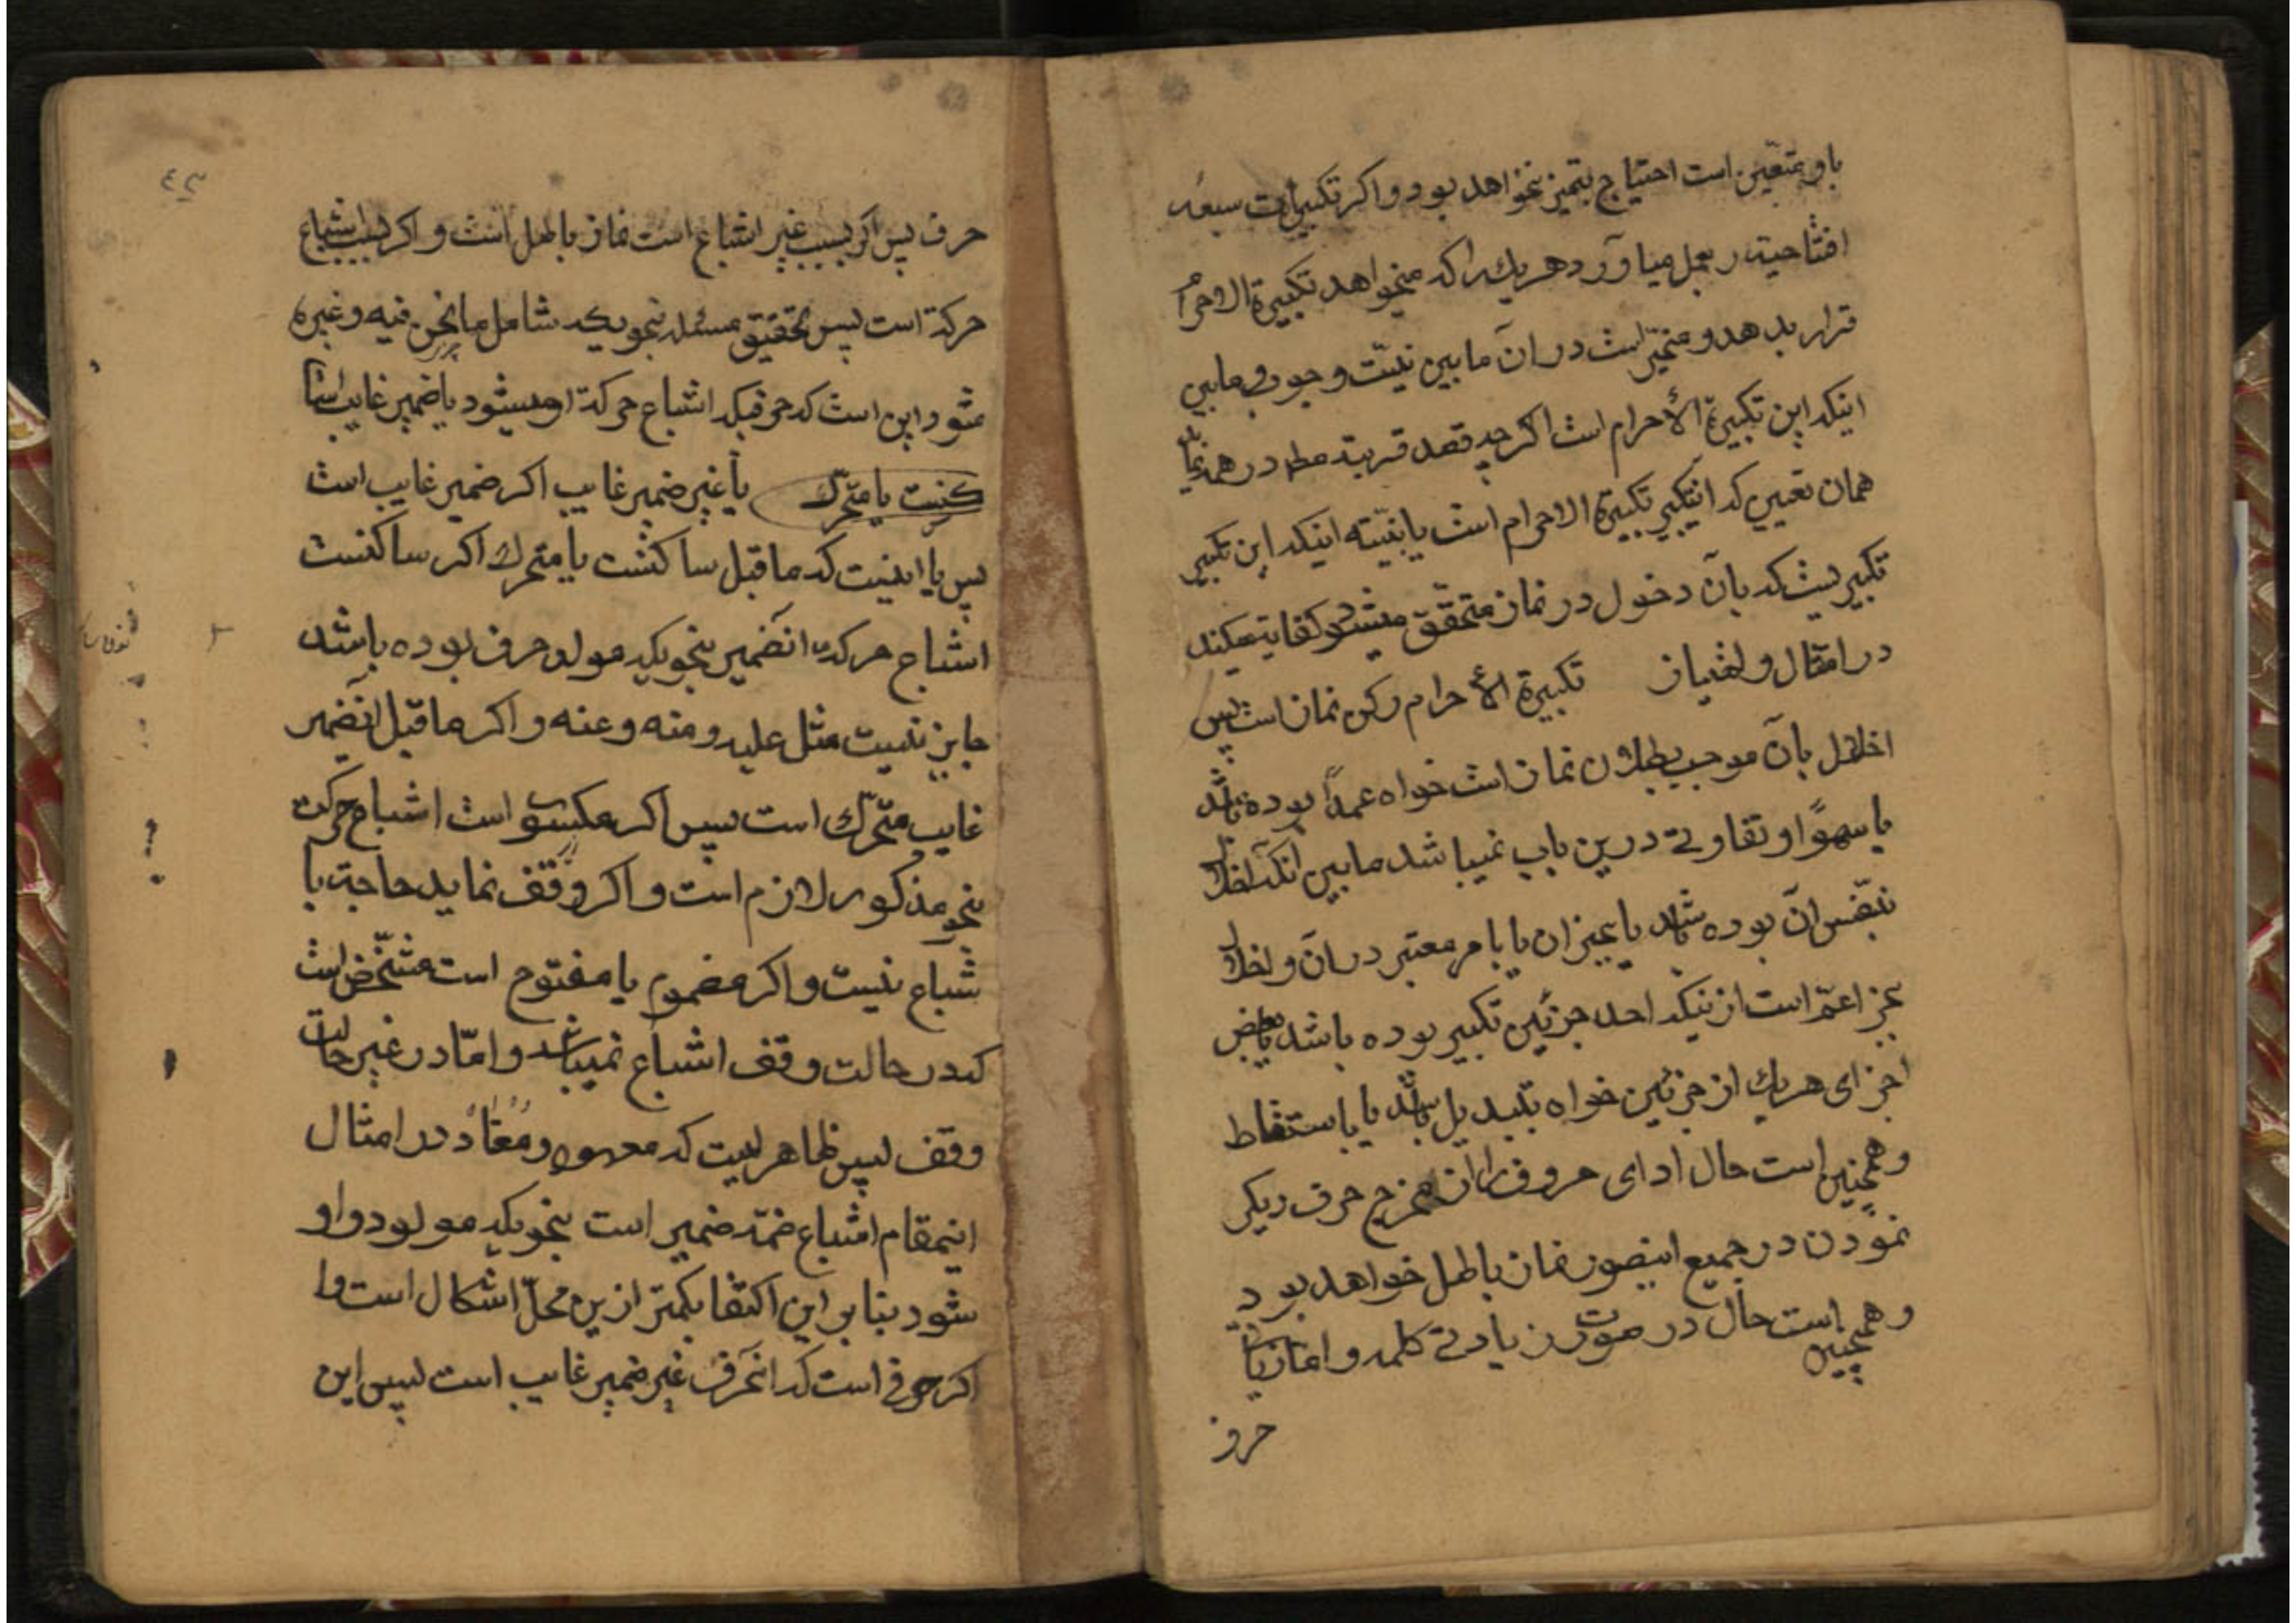 باو متعین است احتیاج بتمیز نخواهد بود و اکر تکبیرات سبعه
افتتاحیه ر بعمل میاورد هریك راکه میخواهد تکبیرة الاحرام
قرار بدهد و مخیر است در ان مابین نیت وجوب و مابین
اینکه این تکبیرة الأحرام است اکرچه قصد قربة در همه
همان تعیین که تکبیرة الاحرام است یا نیته اینکه این تکبیر
تکبیریست که بآن دخول در نماز متحقق میشود کفایة میکند
در امتثال و امتیاز تکبیرة الأحرام رکن نماز است پس
اخلال بآن موجب بطلان نماز است خواه عمداً بوده باشد
یا سهوًا و تفاوتی درین باب نمیباشد مابین انکه اخلال
بنفس ان بوده باشد یا بجز ان یا بامر معتبر در ان و اخلال
بجز اعم است از نیکه احد جزئین تکبیر بوده باشد یا بعض
اجزای هریك از جزئین خواه بتبدیل باشد یا باسقاط
و همچنین است حال ادای حروف را از مخرج حرف دیکر
نمودن در جمیع اینصور نماز باطل خواهد بود
و همچنین است حال در صورت زیادتی کلمه و اما زیادتی
حرف
حرف پس اکر بسبب غیر اشباع است نماز باطل است و اکر بسبب اشباع
حرکة است پس تحقیق مسئله بنحویکه شامل مانحن فیه و غیره
شود این است که حرفیکه اشباع حرکة او میشود یا ضمیر غایب است
کنست یا متحرك یا غیر ضمیر غایب اکر ضمیر غایب است
پس یا اینست که ماقبل ساکنست یا متحرك اکر ساکنست
اشباع حرکة انضمیر بنحویکه مولد حرف بوده باشد
جایز نیست مثل علیه و منه و عنه و اکر ماقبل انضمیر
غایب متحرك است پس اکر مکسور است اشباع حرکت
بنحو مذکور لازم است و اکر وقف نماید حاجة با
شباع نیست و اکر مضموم یا مفتوح است مشخص است
که در حالت وقف اشباع نمیباشد و امّا در غیر حالت
وقف پس ظاهر اینست که معهود و معتاد در امثال
اینمقام اشباع ضمّه ضمیر است بنحویکه مولود واو
شود بنابر این اکتفا بکمتر ازین محلّ اشکال است و ا
اکر حرفی است که انحرف غیر ضمیر غایب است پس این